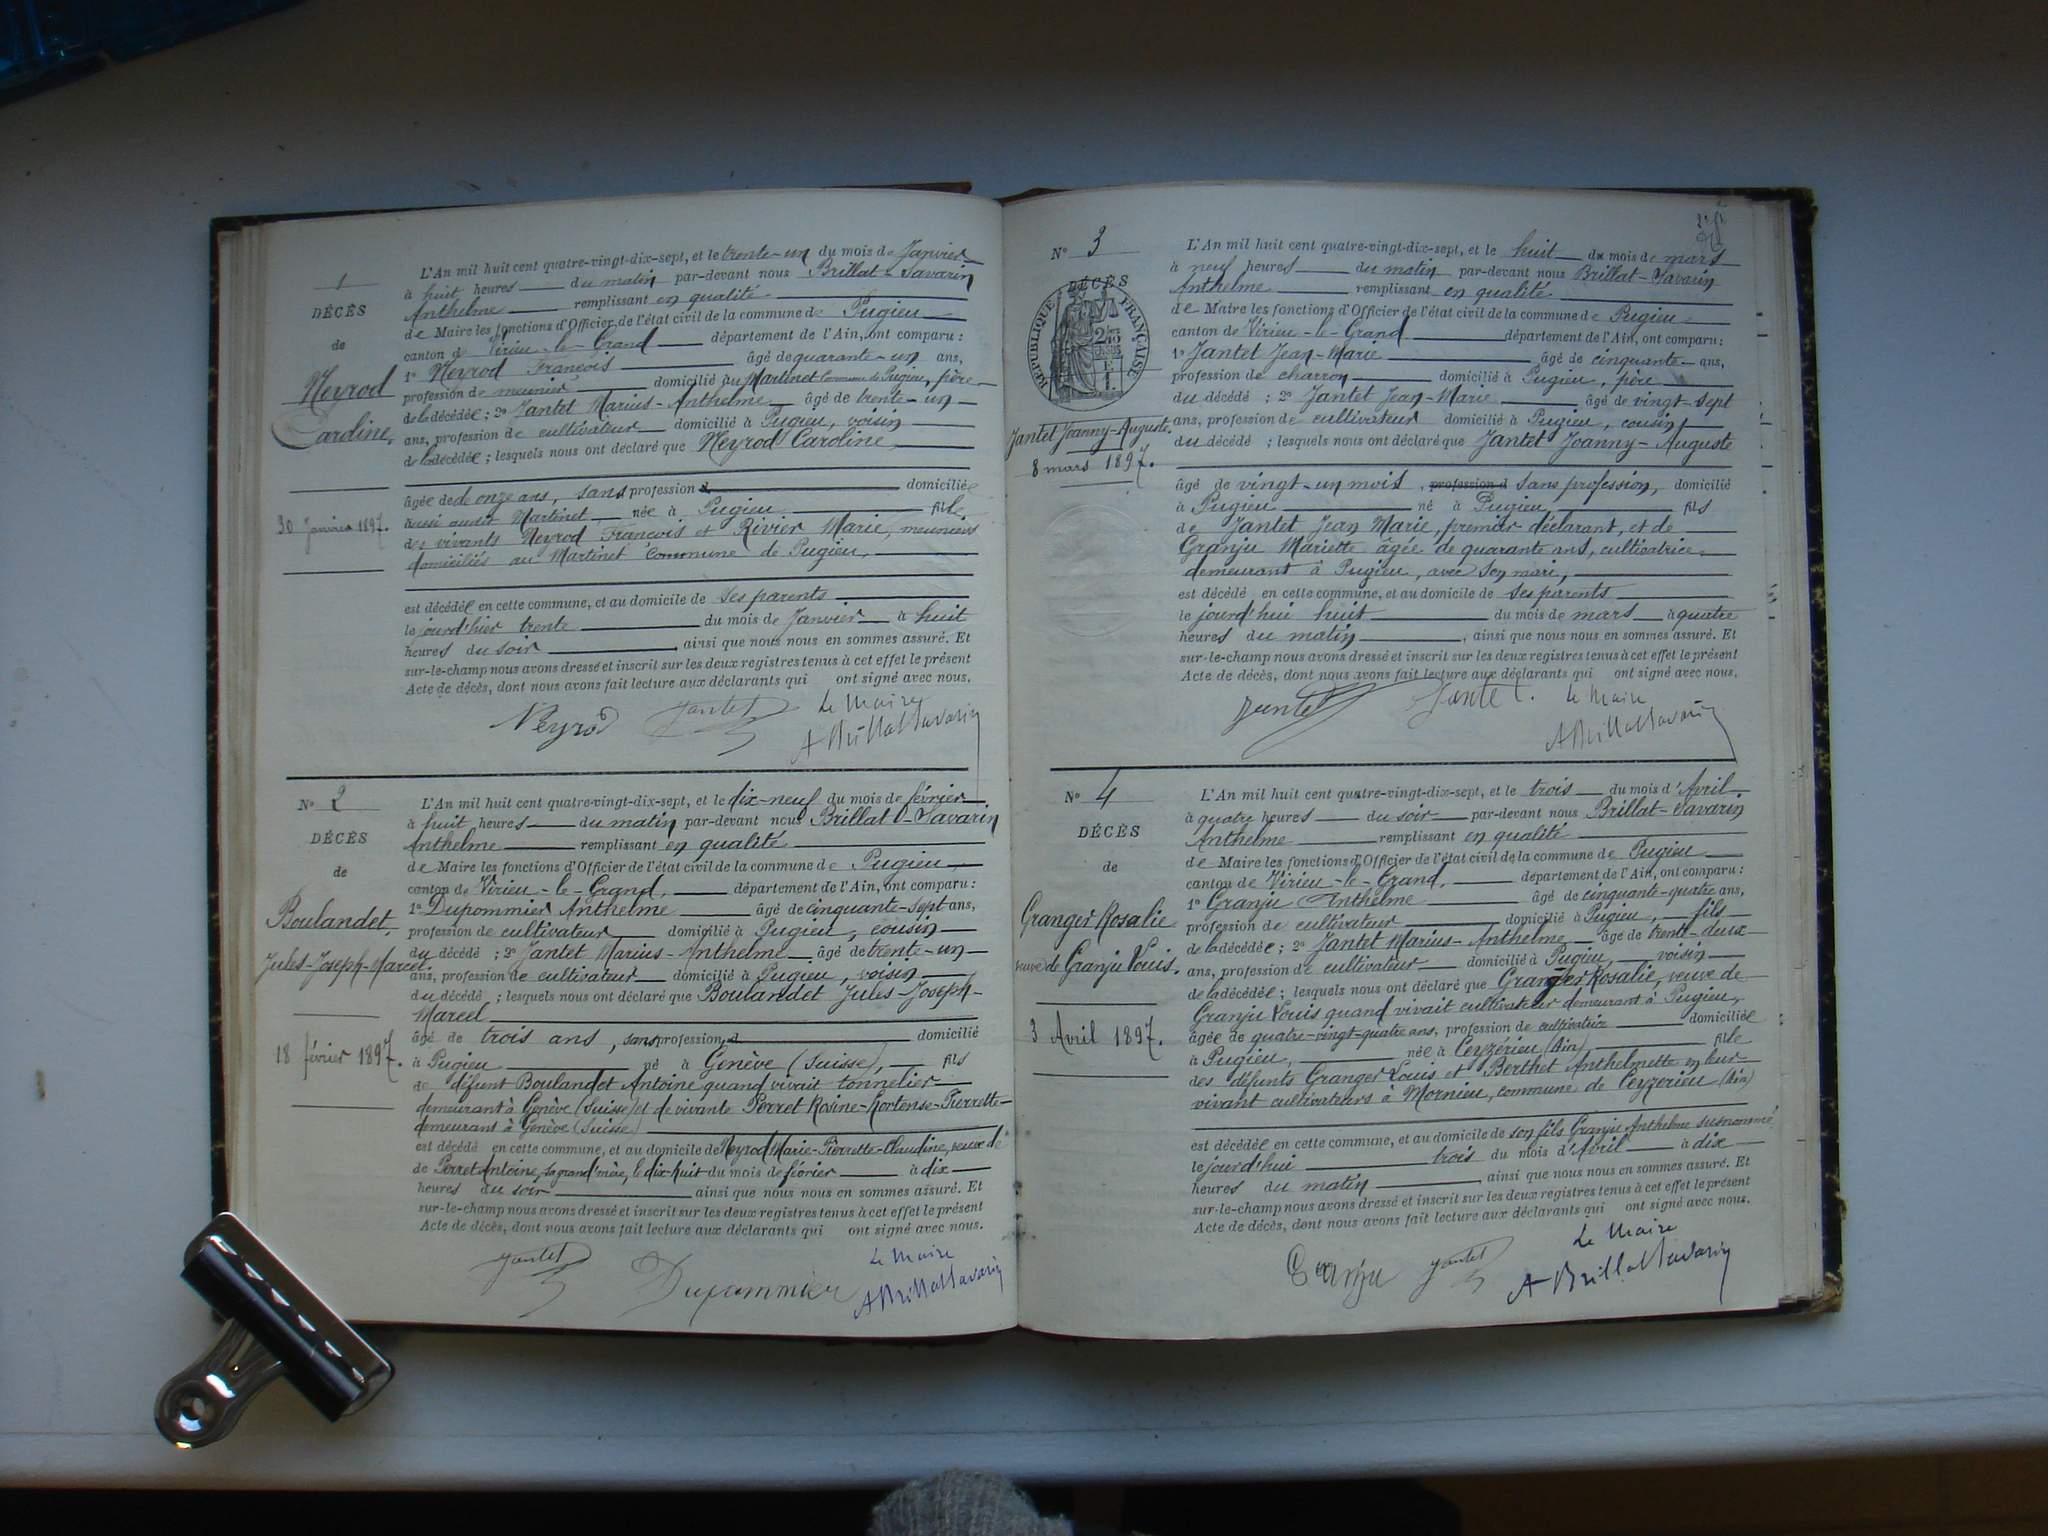 1
DÉCÈS
de
Neyrod
Caroline,
30 Janvier 1897.
L'An mil huit cent quatre-vingt-dix-sept, et le trente-un du mois de Janvier
à huit heures du matin par-devant nous Brillat-Savarin
Anthelme remplissant en qualité
de Maire les fonctions d'Officier de l'état civil de la commune de Pugieu
canton de Virieu-le-Grand département de l'Ain, ont comparu :
1º Neyrod François âgé de quarante-un ans,
profession de meunier domicilié au Martinet commune de Pugieu, père
de la décédée ; 2º Jantet Marius-Anthelme âgé de trente-un
ans, profession de cultivateur domicilié à Pugieu, voisin
de la décédée ; lesquels nous ont déclaré que Neyrod Caroline
âgée de de onze ans, sans profession d domiciliée
aussi au dit Martinet née à Pugieu fille
des vivants Neyrod François et Rivier Marie, meuniers
domiciliés au Martinet commune de Pugieu,
est décédée en cette commune, et au domicile de ses parents
le jourd'hier trente du mois de Janvier à huit
heures du soir , ainsi que nous nous en sommes assuré. Et
sur-le-champ nous avons dressé et inscrit sur les deux registres tenus à cet effet le présent
Acte de décès, dont nous avons fait lecture aux déclarants qui ont signé avec nous.
Neyrod Jantet Le Maire
A Brillat Savarin
Nº 2
DÉCÈS
de
Boulandet,
Jules-Joseph-Marcel.
18 février 1897.
L'An mil huit cent quatre-vingt-dix-sept, et le dix-neuf du mois de février
à huit heures du matin par-devant nous Brillat-Savarin
Anthelme remplissant en qualité
de Maire les fonctions d'Officier de l'état civil de la commune de Pugieu
canton de Virieu-le-Grand, département de l'Ain, ont comparu :
1º Dupommier Anthelme âgé de cinquante-sept ans,
profession de cultivateur domicilié à Pugieu, cousin
du décédé ; 2º Jantet Marius-Anthelme âgé de trente-un
ans, profession de cultivateur domicilié à Pugieu, voisin
du décédé ; lesquels nous ont déclaré que Boulandet Jules-Joseph-
Marcel
âgé de trois ans, sans profession d domicilié
à Pugieu né à Genève (Suisse), fils
de défunt Boulandet Antoine quand vivait tonnelier
demeurant à Genève (Suisse) et de vivante Perret Rosine-Hortense-Pierrette
demeurant à Genève (Suisse)
est décédé en cette commune, et au domicile de Neyrod Marie-Pierrette-Claudine, veuve de
de Perret Antoine, sa grand'mère, le dix-huit du mois de février à dix
heures du soir ainsi que nous nous en sommes assuré. Et
sur-le-champ nous avons dressé et inscrit sur les deux registres tenus à cet effet le présent
Acte de décès, dont nous avons fait lecture aux déclarants qui ont signé avec nous.
Jantet Dupommier Le Maire
A Brillat Savarin
Nº 3
DÉCÈS
RÉPUBLIQUE FRANÇAISE
Jantet Joanny-Auguste.
8 mars 1897.
L'An mil huit cent quatre-vingt-dix-sept, et le huit du mois de mars
à neuf heures du matin par-devant nous Brillat-Savarin
Anthelme remplissant en qualité
de Maire les fonctions d'Officier de l'état civil de la commune de Pugieu
canton de Virieu-le-Grand département de l'Ain, ont comparu :
1º Jantet Jean-Marie âgé de cinquante ans,
profession de charron domicilié à Pugieu, père
du décédé ; 2º Jantet Jean-Marie âgé de vingt-sept
ans, profession de cultivateur domicilié à Pugieu, cousin
du décédé ; lesquels nous ont déclaré que Jantet Joanny-Auguste
âgé de vingt-un mois, profession d sans profession, domicilié
à Pugieu né à Pugieu, fils
de Jantet Jean Marie, premier déclarant, et de
Granju Mariette âgée de quarante ans, cultivatrice
demeurant à Pugieu, avec son mari,
est décédé en cette commune, et au domicile de ses parents
le jourd'hui huit du mois de mars à quatre
heures du matin , ainsi que nous nous en sommes assuré. Et
sur-le-champ nous avons dressé et inscrit sur les deux registres tenus à cet effet le présent
Acte de décès, dont nous avons fait lecture aux déclarants qui ont signé avec nous.
Jantet Jantet. Le Maire
A Brillat Savarin
Nº 4
DÉCÈS
de
Granger Rosalie
veuve de Granju Louis.
3 Avril 1897.
L'An mil huit cent quatre-vingt-dix-sept, et le trois du mois d'Avril
à quatre heures du soir par-devant nous Brillat-Savarin
Anthelme remplissant en qualité
de Maire les fonctions d'Officier de l'état civil de la commune de Pugieu
canton de Virieu-le-Grand, département de l'Ain, ont comparu :
1º Granju Anthelme âgé de cinquante-quatre ans,
profession de cultivateur domicilié à Pugieu, fils
de la décédée ; 2º Jantet Marius-Anthelme âgé de trente-deux
ans, profession de cultivateur domicilié à Pugieu, voisin
de la décédée ; lesquels nous ont déclaré que Granger Rosalie, veuve de
Granju Louis quand vivait cultivateur demeurant à Pugieu,
âgée de quatre-vingt-quatre ans, profession de cultivatrice domiciliée
à Pugieu, née à Ceyzérieu (Ain) fille
des défunts Granger Louis et Berthet Anthelmette en leur
vivant cultivateurs à Mornieu, commune de Ceyzerieu (Ain)
est décédée en cette commune, et au domicile de son fils Granju Anthelme susnommé
le jourd'hui trois du mois d'Avril à dix
heures du matin , ainsi que nous nous en sommes assuré. Et
sur-le-champ nous avons dressé et inscrit sur les deux registres tenus à cet effet le présent
Acte de décès, dont nous avons fait lecture aux déclarants qui ont signé avec nous.
Granju Jantet Le Maire
A Brillat Savarin